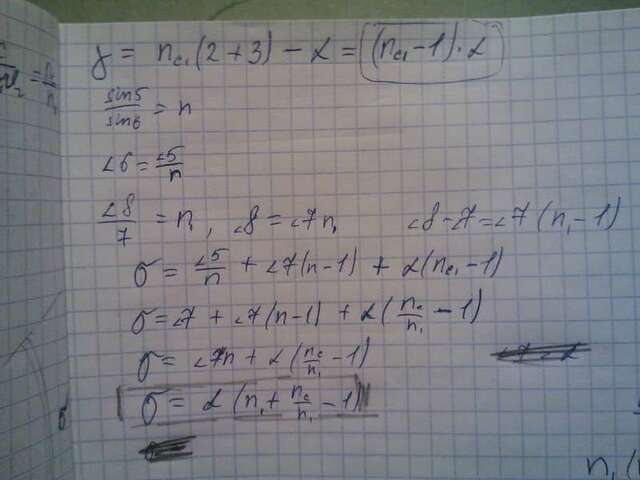 γ = n_c₁(2+3) − α = (n_c₁ − 1)·α
sin5/sin6 = n
∠6 = ∠5/n
∠8/7 = n₁, ∠8 = ∠7n₁ ∠8−∠7 = ∠7(n₁−1)
σ = ∠5/n + ∠7(n−1) + α(n_c₁ − 1)
σ = ∠7 + ∠7(n−1) + α(n_c/n₁ − 1)
σ = ∠7n + α(n_c/n₁ − 1)
σ = α(n₁ + n_c/n₁ − 1)